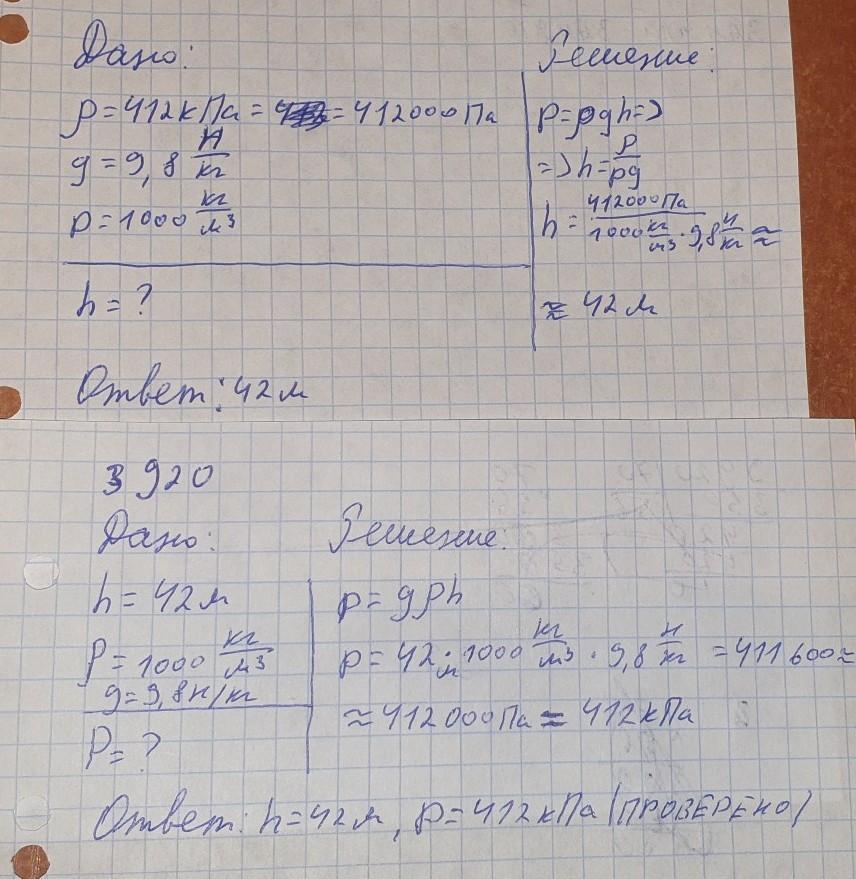 Дано:
Решение:
ρ=412кПа= =412000Па
g=9,8 Н/кг
p=1000 кг/м³
p=ρgh=>
=>h=p/pg
h= 412000Па/1000 кг/м³ · 9,8 Н/кг ≈
≈ 42м
h=?
Ответ: 42м
З 920
Дано:
Решение:
h=42м
ρ=1000 кг/м³
g=9,8Н/кг
P=?
p=gρh
p=42м·1000 кг/м³ · 9,8 Н/кг =411600≈
≈412000Па=412кПа
Ответ: h=42м, p=412кПа(ПРОВЕРЕНО)